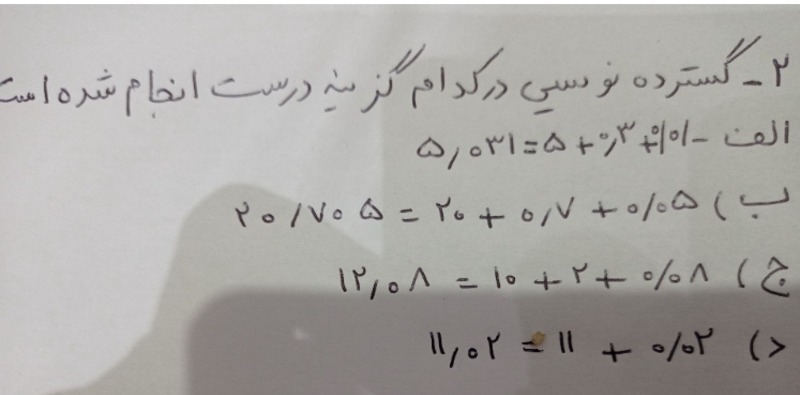 ۲ـ گسترده نویسی در کدام گزینه درست انجام شده است
الف - ۵٫۰۳۱ = ۵ + ۰٫۳ + ۰/۰۱
ب) ۲۰/۷۰۵ = ۲۰ + ۰/۷ + ۰/۰۵
ج) ۱۲٫۰۸ = ۱۰ + ۲ + ۰/۰۸
د) ۱۱٫۰۲ = ۱۱ + ۰/۰۲